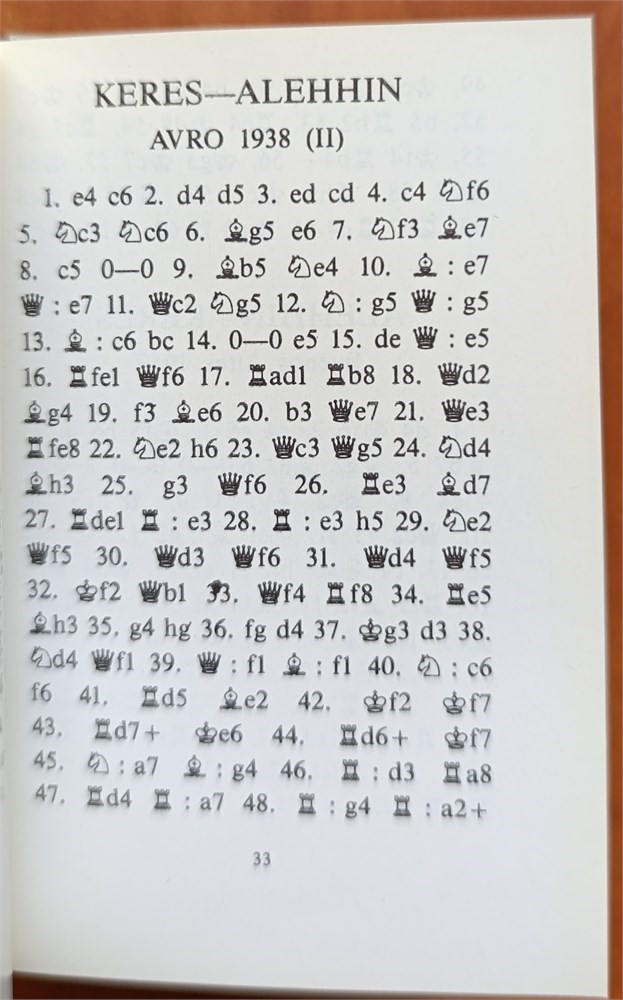 KERES—ALEHHIN
AVRO 1938 (II)
1. e4 c6 2. d4 d5 3. ed cd 4. c4 ♘f6
5. ♘c3 ♘c6 6. ♗g5 e6 7. ♘f3 ♗e7
8. c5 0—0 9. ♗b5 ♘e4 10. ♗ : e7
♛ : e7 11. ♛c2 ♘g5 12. ♘ : g5 ♛ : g5
13. ♗ : c6 bc 14. 0—0 e5 15. de ♛ : e5
16. ♜fe1 ♛f6 17. ♜ad1 ♜b8 18. ♛d2
♗g4 19. f3 ♗e6 20. b3 ♛e7 21. ♛e3
♜fe8 22. ♘e2 h6 23. ♛c3 ♛g5 24. ♘d4
♗h3 25. g3 ♛f6 26. ♜e3 ♗d7
27. ♜de1 ♜ : e3 28. ♜ : e3 h5 29. ♘e2
♛f5 30. ♛d3 ♛f6 31. ♛d4 ♛f5
32. ♔f2 ♛b1 33. ♛f4 ♜f8 34. ♜e5
♗h3 35. g4 hg 36. fg d4 37. ♔g3 d3 38.
♘d4 ♛f1 39. ♛ : f1 ♗ : f1 40. ♘ : c6
f6 41. ♜d5 ♗e2 42. ♔f2 ♔f7
43. ♜d7+ ♔e6 44. ♜d6+ ♔f7
45. ♘ : a7 ♗ : g4 46. ♜ : d3 ♜a8
47. ♜d4 ♜ : a7 48. ♜ : g4 ♜ : a2+
33